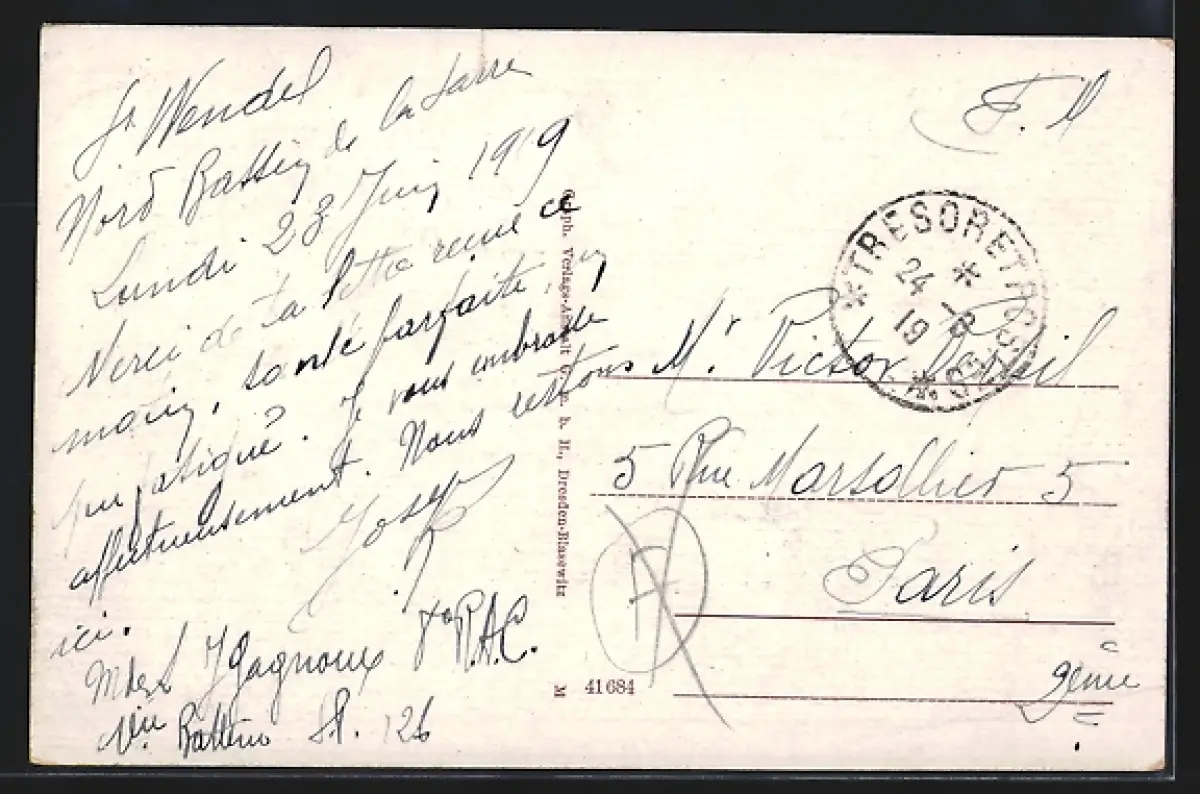 St Wendel
Nord Bassin de la Sarre
Lundi 23 Juin 1919
Merci de ta lettre reçue ce
matin, santé parfaite, un
peu fatigué. Je vous embrasse
affectueusement. Nous restons
ici.
Joseph
J Gagnoux RAC.
Batterie SP. 126
F. M
*TRESOR ET POSTES*
24 -6
19
Mr. Victor
5 Rue Marsollier 5
Paris
2ème
A
Graph. Verlags-Anstalt G. m. b. H., Dresden-Blasewitz
M 41684